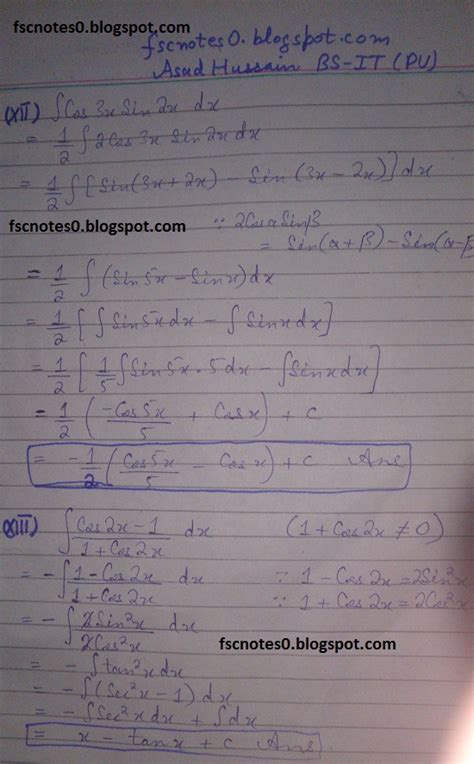 fscnotes0.blogspot.com
fscnotes0.blogspot.com
Asad Hussain BS-IT (PU)
(XII) ∫Cos 3x Sin 2x dx
= 1/2 ∫2Cos 3x Sin 2x dx
= 1/2 ∫[Sin(3x+2x) - Sin(3x-2x)]dx
fscnotes0.blogspot.com
∵ 2Cosα Sinβ
= Sin(α+β) - Sin(α-β
= 1/2 ∫(Sin5x - Sinx)dx
= 1/2 [∫Sin5x dx - ∫Sinx dx]
= 1/2 [1/5 ∫Sin5x · 5dx - ∫Sinx dx]
= 1/2 (-Cos5x/5 + Cosx) + c
= -1/2 (Cos5x/5 - Cosx) + c Ans
(XIII) ∫ Cos2x-1/1+Cos2x dx (1+Cos2x ≠ 0)
= -∫ 1-Cos2x/1+Cos2x dx ∵ 1-Cos2x = 2Sin²x
∵ 1+Cos2x = 2Cos²x
= -∫ 2Sin²x/2Cos²x dx
fscnotes0.blogspot.com
= -∫tan²x dx
= -∫(Sec²x - 1) dx
= -∫Sec²x dx + ∫dx
= x - tanx + c Ans.